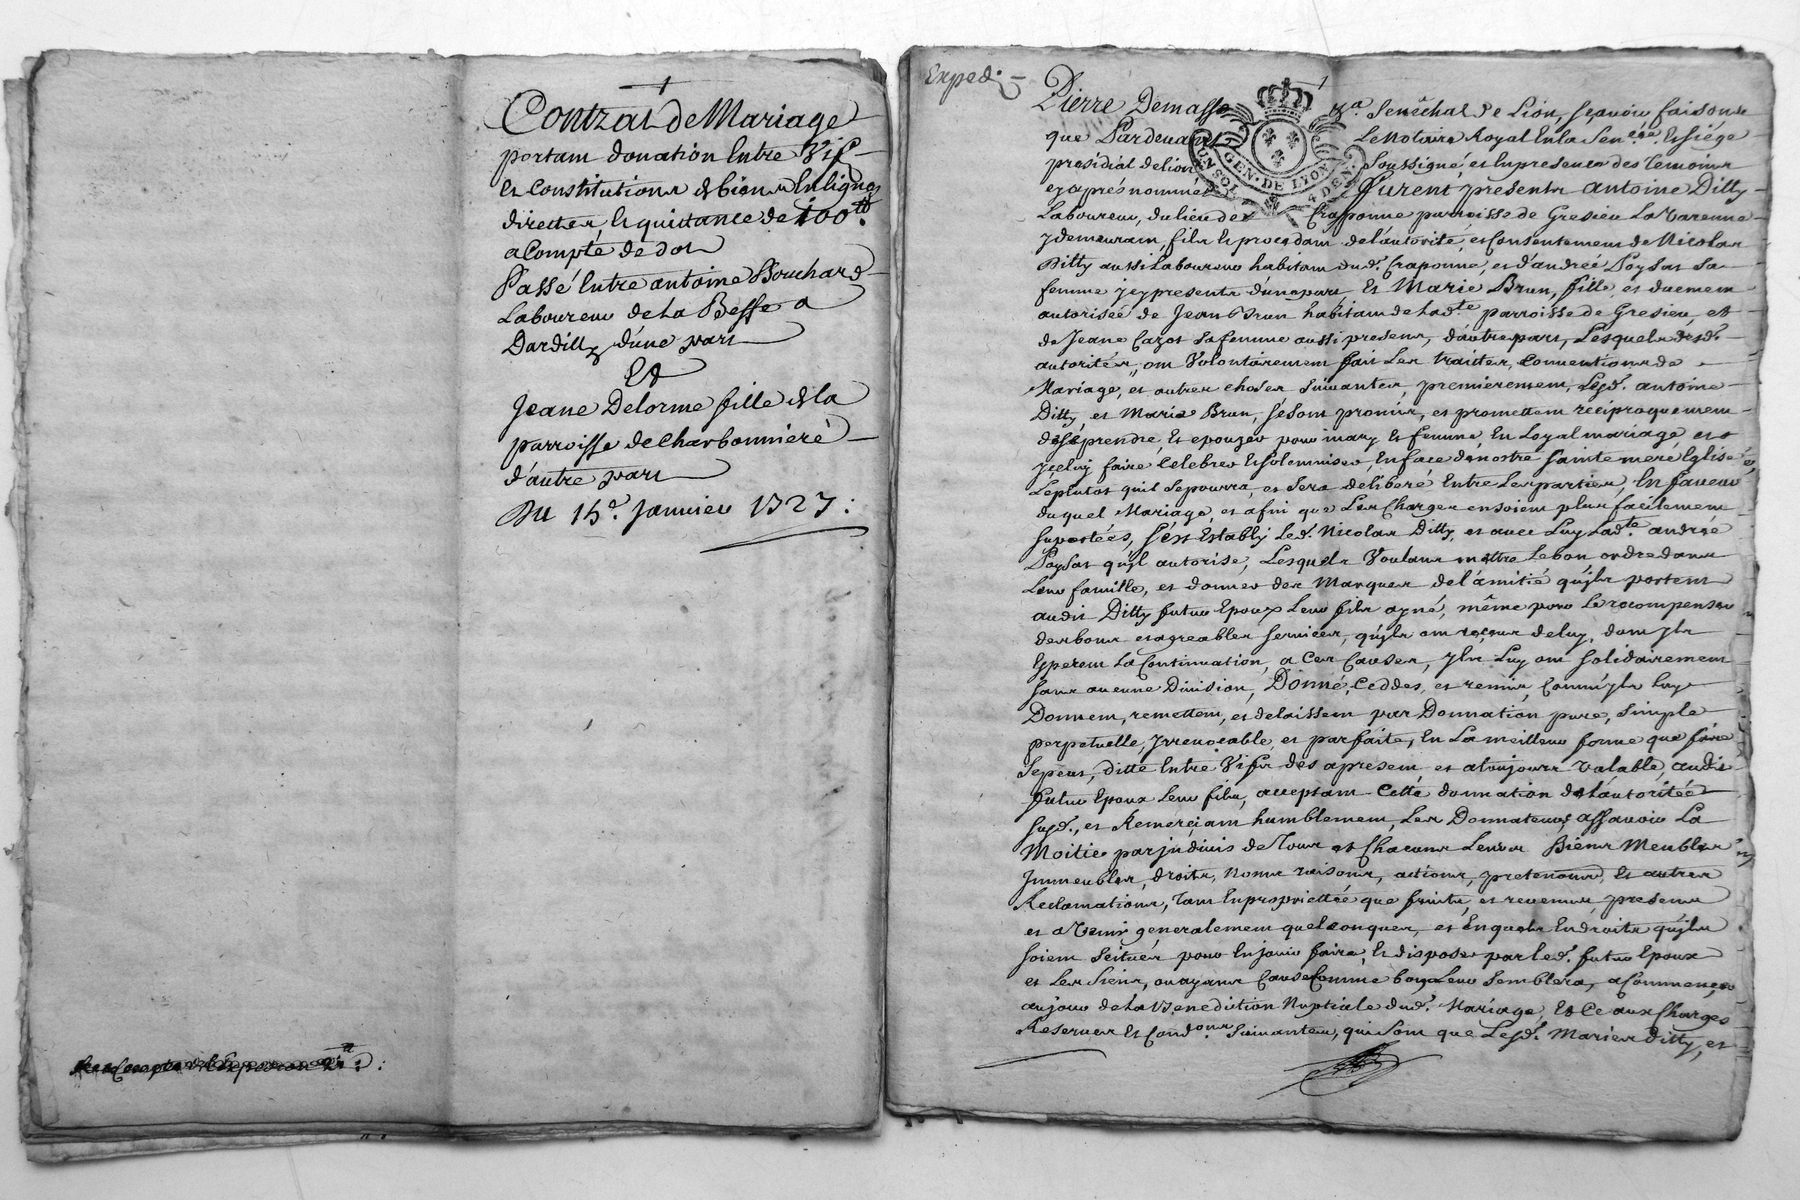 Contrat de Mariage
portant donation Entre Vifs
et constitutions de biens En lignes
directes, et quittance de 100ᵗᵗ
a Compte de dot
Passé Entre antoine Bouchard
Laboureur de La Besse a
Dardilly d'une part
Et
Jeane Delorme fille de la
parroisse de Charbonniere
d'autre part
Du 15e. Janvier 1727 :
Exped.
Pierre Demasso Senéchal de Lion, sçavoir faisons
que Pardevant Le Notaire Royal En la Senée. Et siége
presidial de lion soussigné, et En presence des temoins
cy aprés nommés furent presents antoine Ditty
Laboureur, du lieu de Craponne parroisse de Gresieu La Varenne
y demeurant, fils Et procedant de l'autorité, et consentement de Nicolas
Ditty aussi Laboureur habitant dud. Craponne, et d'andreé Poysat sa
femme icy presents d'une part Et Marie Brun, fille et duement
autoriseé de Jean Brun habitant de lad.te parroisse de Gresieu, et
de Jeane Cazot sa femme aussi presens, d'autre part, Lesquels desd.
autorités, ont Volontairement fait Les traites, Conventions de
Mariage, et autres choses suivantes, premierement, Lesd. antoine
Ditty, et Marie Brun, se sont promis, et promettent reciproquement
de se prendre, Et epouzer pour mary Et femme, En Loyal mariage et
yceluy faire Celebrer Et solemniser, En face de nostre Sainte mere Eglise
Le plutot qu'il se pourra, et sera deliberé Entre Les parties, En faveur
duquel Mariage, et afin que Les Charges en soient plus facilement
suportées, s'est Estably Led. Nicolas Ditty, et avec Luy Lad.te andreé
Poysat qu'il autorise, Lesquels Voulant mettre Le bon ordre dans
Leur famille, et donner des Marques de l'amitié qu'ils portent
audit Ditty futur Epoux Leur fils ayné, même pour Le recompenser
des bons et agreables services, qu'ils ont reçeus de luy, dont ils
Esperent La Continuation, a Ces Causes, ils Luy ont solidairement
sans aucune Division, Donné, Ceddés, et remis, Comm'ils Luy
Donnent, remettent, et delaissent par Donnation pure, simple
perpetuelle, Irrevocable, et parfaite, En La meilleur forme que faire
Se peut, ditte Entre Vifs des apresent, et a toujours Valable, audit
futur Epoux Leur fils, acceptant Cette donnation de l'autoritée
susd., et Remerçiant humblement, Les Donnateurs, assavoir La
Moitié par indivis de tous et Chacuns Leurs Biens Meubles
Immeubles, droits, Noms raisons, actions, pretentions, et autres
Reclamations, tant En proprietteé que fruits, et revenus, presens
et a Venir generalement quelconques, et En quels Endroits qu'ils
soient scitués pour En jouir faire, Et disposer par led. futur Epoux
et Les Siens, ou ayans Cause Comme bon Leur Semblera, a Commencer
au jour de La Benediction Nuptiale dud. Mariage, Et Ce aux Charges
Reserves Et Condons. Suivantes, qui Sont que Lesd. Mariés Ditty, et
GEN. DE LYON